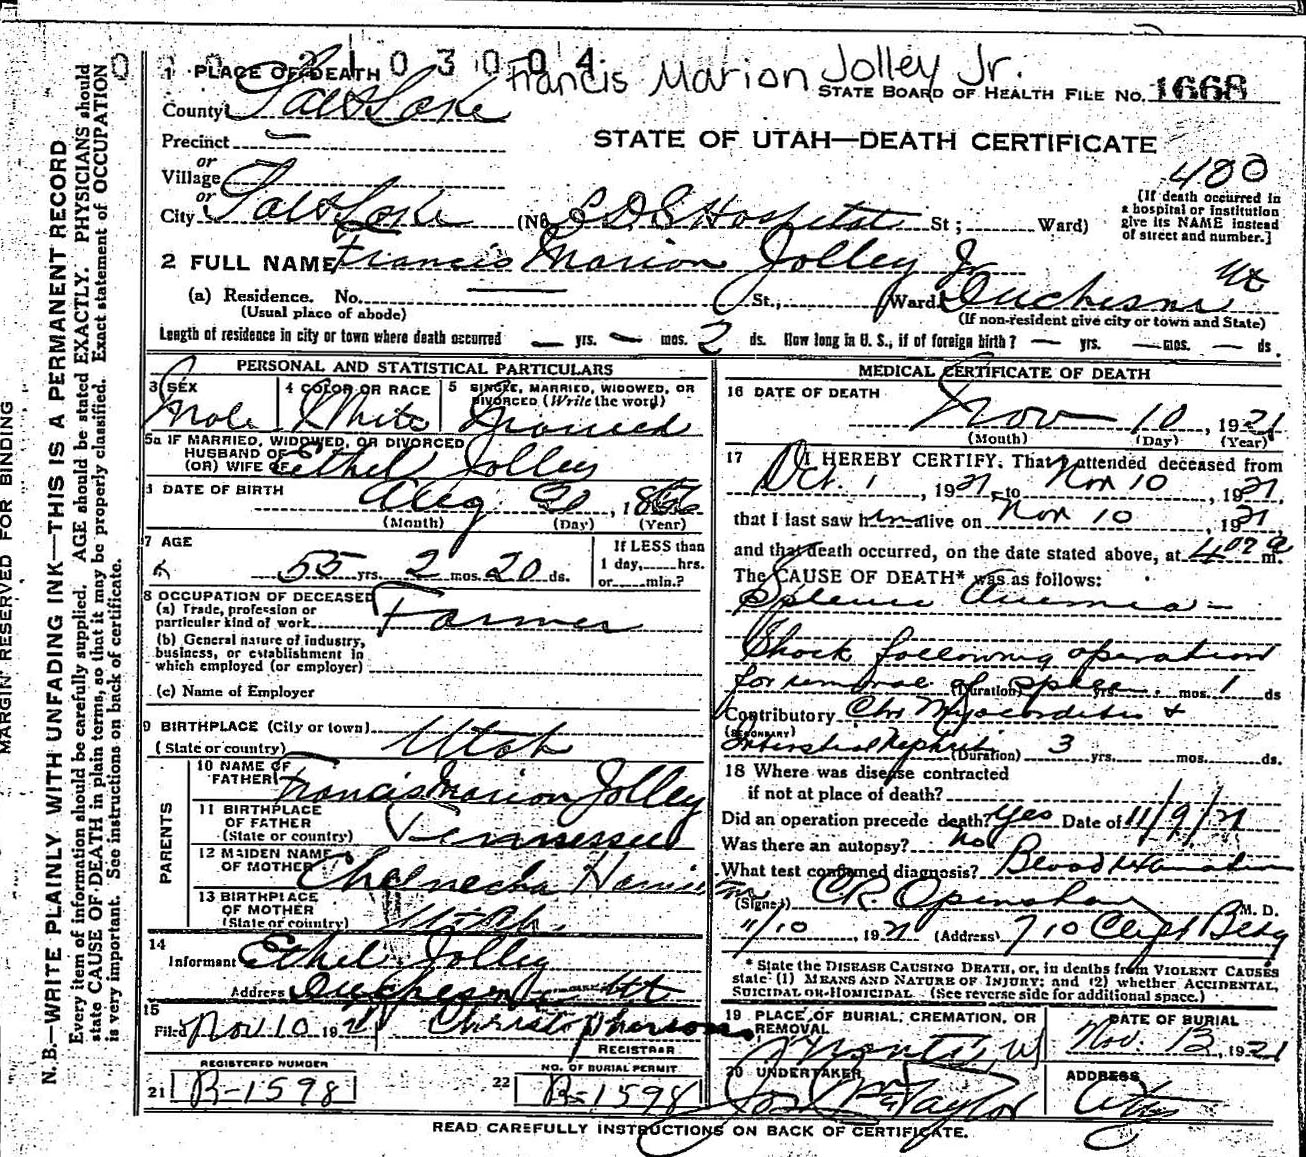 0 2 1 0 3 0 0 4
Francis Marion Jolley Jr.
1 PLACE OF DEATH
STATE BOARD OF HEALTH FILE NO. 1668
County Salt Lake
Precinct
STATE OF UTAH—DEATH CERTIFICATE
or
Village
480
or
City Salt Lake (No L D S Hospital St; Ward)
[If death occurred in
a hospital or institution
give its NAME instead
of street and number.]
2 FULL NAME Francis Marion Jolley Jr
(a) Residence. No. St., Ward. Duchesne Ut
(Usual place of abode) (If non-resident give city or town and State)
Length of residence in city or town where death occurred — yrs. — mos. 2 ds. How long in U. S., if of foreign birth? — yrs. — mos. — ds.
PERSONAL AND STATISTICAL PARTICULARS
3 SEX Male
4 COLOR OR RACE White
5 SINGLE, MARRIED, WIDOWED, OR
DIVORCED (Write the word) Married
5a IF MARRIED, WIDOWED, OR DIVORCED
HUSBAND OF
(OR) WIFE OF Ethel Jolley
DATE OF BIRTH Aug 20, 1866
(Month) (Day) (Year)
7 AGE
55 yrs. 2 mos. 20 ds.
If LESS than
1 day, hrs.
or min.?
8 OCCUPATION OF DECEASED
(a) Trade, profession or
particular kind of work Farmer
(b) General nature of industry,
business, or establishment in
which employed (or employer)
(c) Name of Employer
9 BIRTHPLACE (City or town)
(State or country) Utah
PARENTS
10 NAME OF
FATHER Francis Marion Jolley
11 BIRTHPLACE
OF FATHER
(State or country) Tennessee
12 MAIDEN NAME
OF MOTHER
13 BIRTHPLACE
OF MOTHER
(State or country) Utah.
14
Informant Ethel Jolley
Address Duchesne Ut
15
Filed Nov 10 1921 Christopherson
REGISTRAR
REGISTERED NUMBER
21 B-1598
NO. OF BURIAL PERMIT
22 B-1598
MEDICAL CERTIFICATE OF DEATH
16 DATE OF DEATH
Nov 10, 1921
(Month) (Day) (Year)
17 I HEREBY CERTIFY, That I attended deceased from
Oct. 1, 1921, to Nov 10, 1921,
that I last saw him alive on Nov 10, 1921
and that death occurred, on the date stated above, at 4 07 a m.
The CAUSE OF DEATH* was as follows:
Splenic Anemia —
Shock following operation
for removal of spleen (Duration) yrs. mos. 1 ds
Contributory Chr Myocarditis +
(SECONDARY)
Interstitial Nephritis (Duration) 3 yrs. mos. ds.
18 Where was disease contracted
if not at place of death?
Did an operation precede death? Yes Date of 11/9/21
Was there an autopsy? No
What test confirmed diagnosis? Blood Examination
(Signed) C.R. Openshaw M. D.
11/10, 1921 (Address) 710 Clift Bldg
* State the DISEASE CAUSING DEATH, or, in deaths from VIOLENT CAUSES
state (1) MEANS AND NATURE OF INJURY; and (2) whether ACCIDENTAL,
SUICIDAL OR HOMICIDAL. (See reverse side for additional space.)
19 PLACE OF BURIAL, CREMATION, OR
REMOVAL
DATE OF BURIAL
Nov. 13, 1921
20 UNDERTAKER
Jos Wm Taylor
ADDRESS
City
READ CAREFULLY INSTRUCTIONS ON BACK OF CERTIFICATE.
MARGIN RESERVED FOR BINDING
N. B.—WRITE PLAINLY WITH UNFADING INK—THIS IS A PERMANENT RECORD
Every item of information should be carefully supplied. AGE should be stated EXACTLY. PHYSICIANS should
state CAUSE OF DEATH in plain terms, so that it may be properly classified. Exact statement of OCCUPATION
is very important. See instructions on back of certificate.